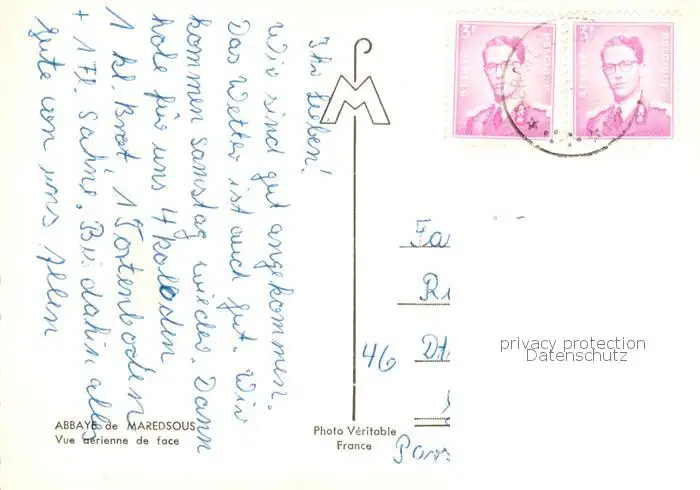 Ihr Lieben!
Wir sind gut angekommen.
Das Wetter ist auch gut. Wir
kommen Samstag wieder. Dann
hole für uns 4 Koladen
1 kl. Brot, 1 Tortenboden
+ 1 Fl. Sahne. Bis dahin alles
gute von uns allen
ABBAYE de MAREDSOUS
Vue aérienne de face
Photo Véritable
France
3F
BELGIE
BELGIQUE
3F
BELGIE
BELGIQUE
46
privacy protection
Datenschutz